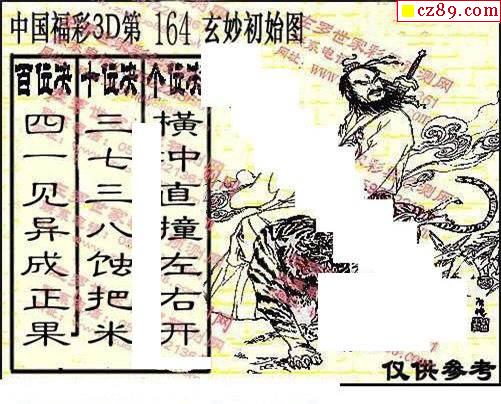 cz89.com
中国福彩3D第 164 玄妙初始图
百位决
四一见异成正果
十位决
三七三八蚀把米
个位决
横中直撞左右开
仅供参考